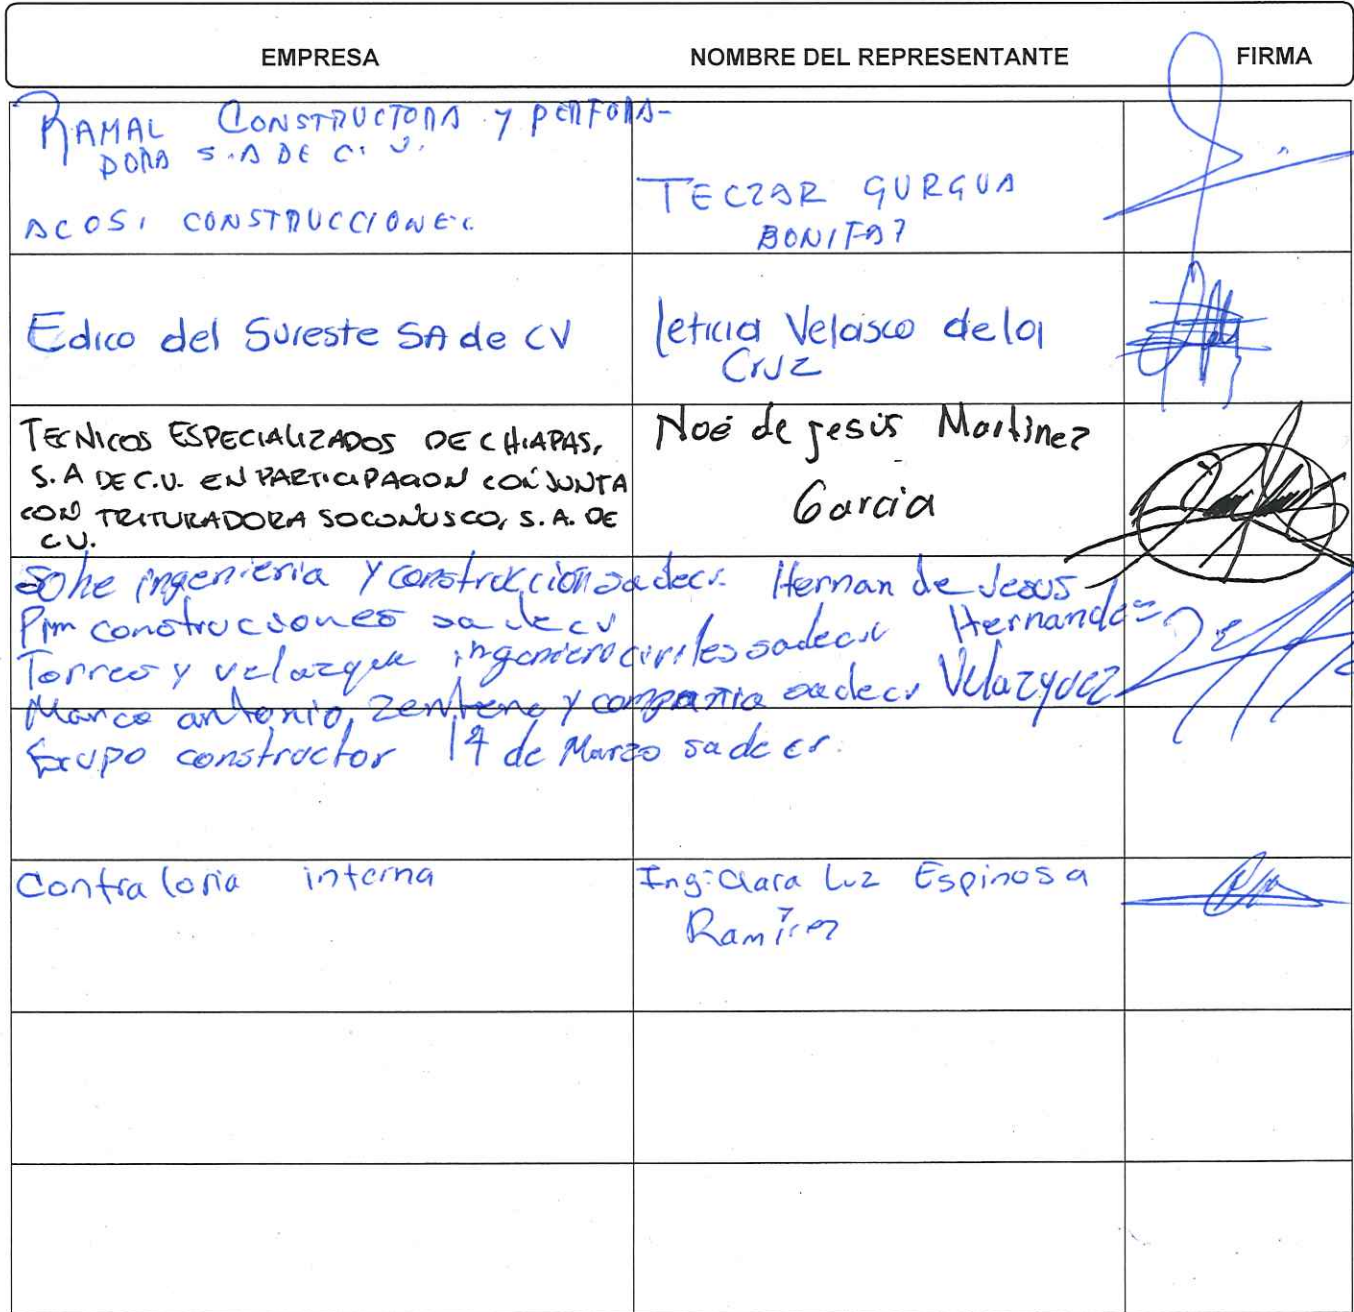 EMPRESA NOMBRE DEL REPRESENTANTE FIRMA
RAMAL CONSTRUCTORA Y PERFORA-
DORA S.A DE C.V.
ACOSI CONSTRUCCIONES
TECZAR GURGUA
BONIFAZ
Edico del Sureste SA de CV
leticia Velasco de la
Cruz
TECNICOS ESPECIALIZADOS DE CHIAPAS,
S.A DE C.V. EN PARTICIPACION CONJUNTA
CON TRITURADORA SOCONUSCO, S.A. DE
C.V.
Noé de jesús Martinez
Garcia
Sohe ingenieria y construccion sa de cv.
Pim construcciones sa de cv
Torres y velazquez ingenieros civiles sadecv
Marco antonio, zenteno y compania sadecv
Grupo constructor 14 de Marzo sa de cv.
Hernan de Jesus
Hernandez
Velazquez
Contraloria interna
Ing. Clara Luz Espinosa
Ramírez